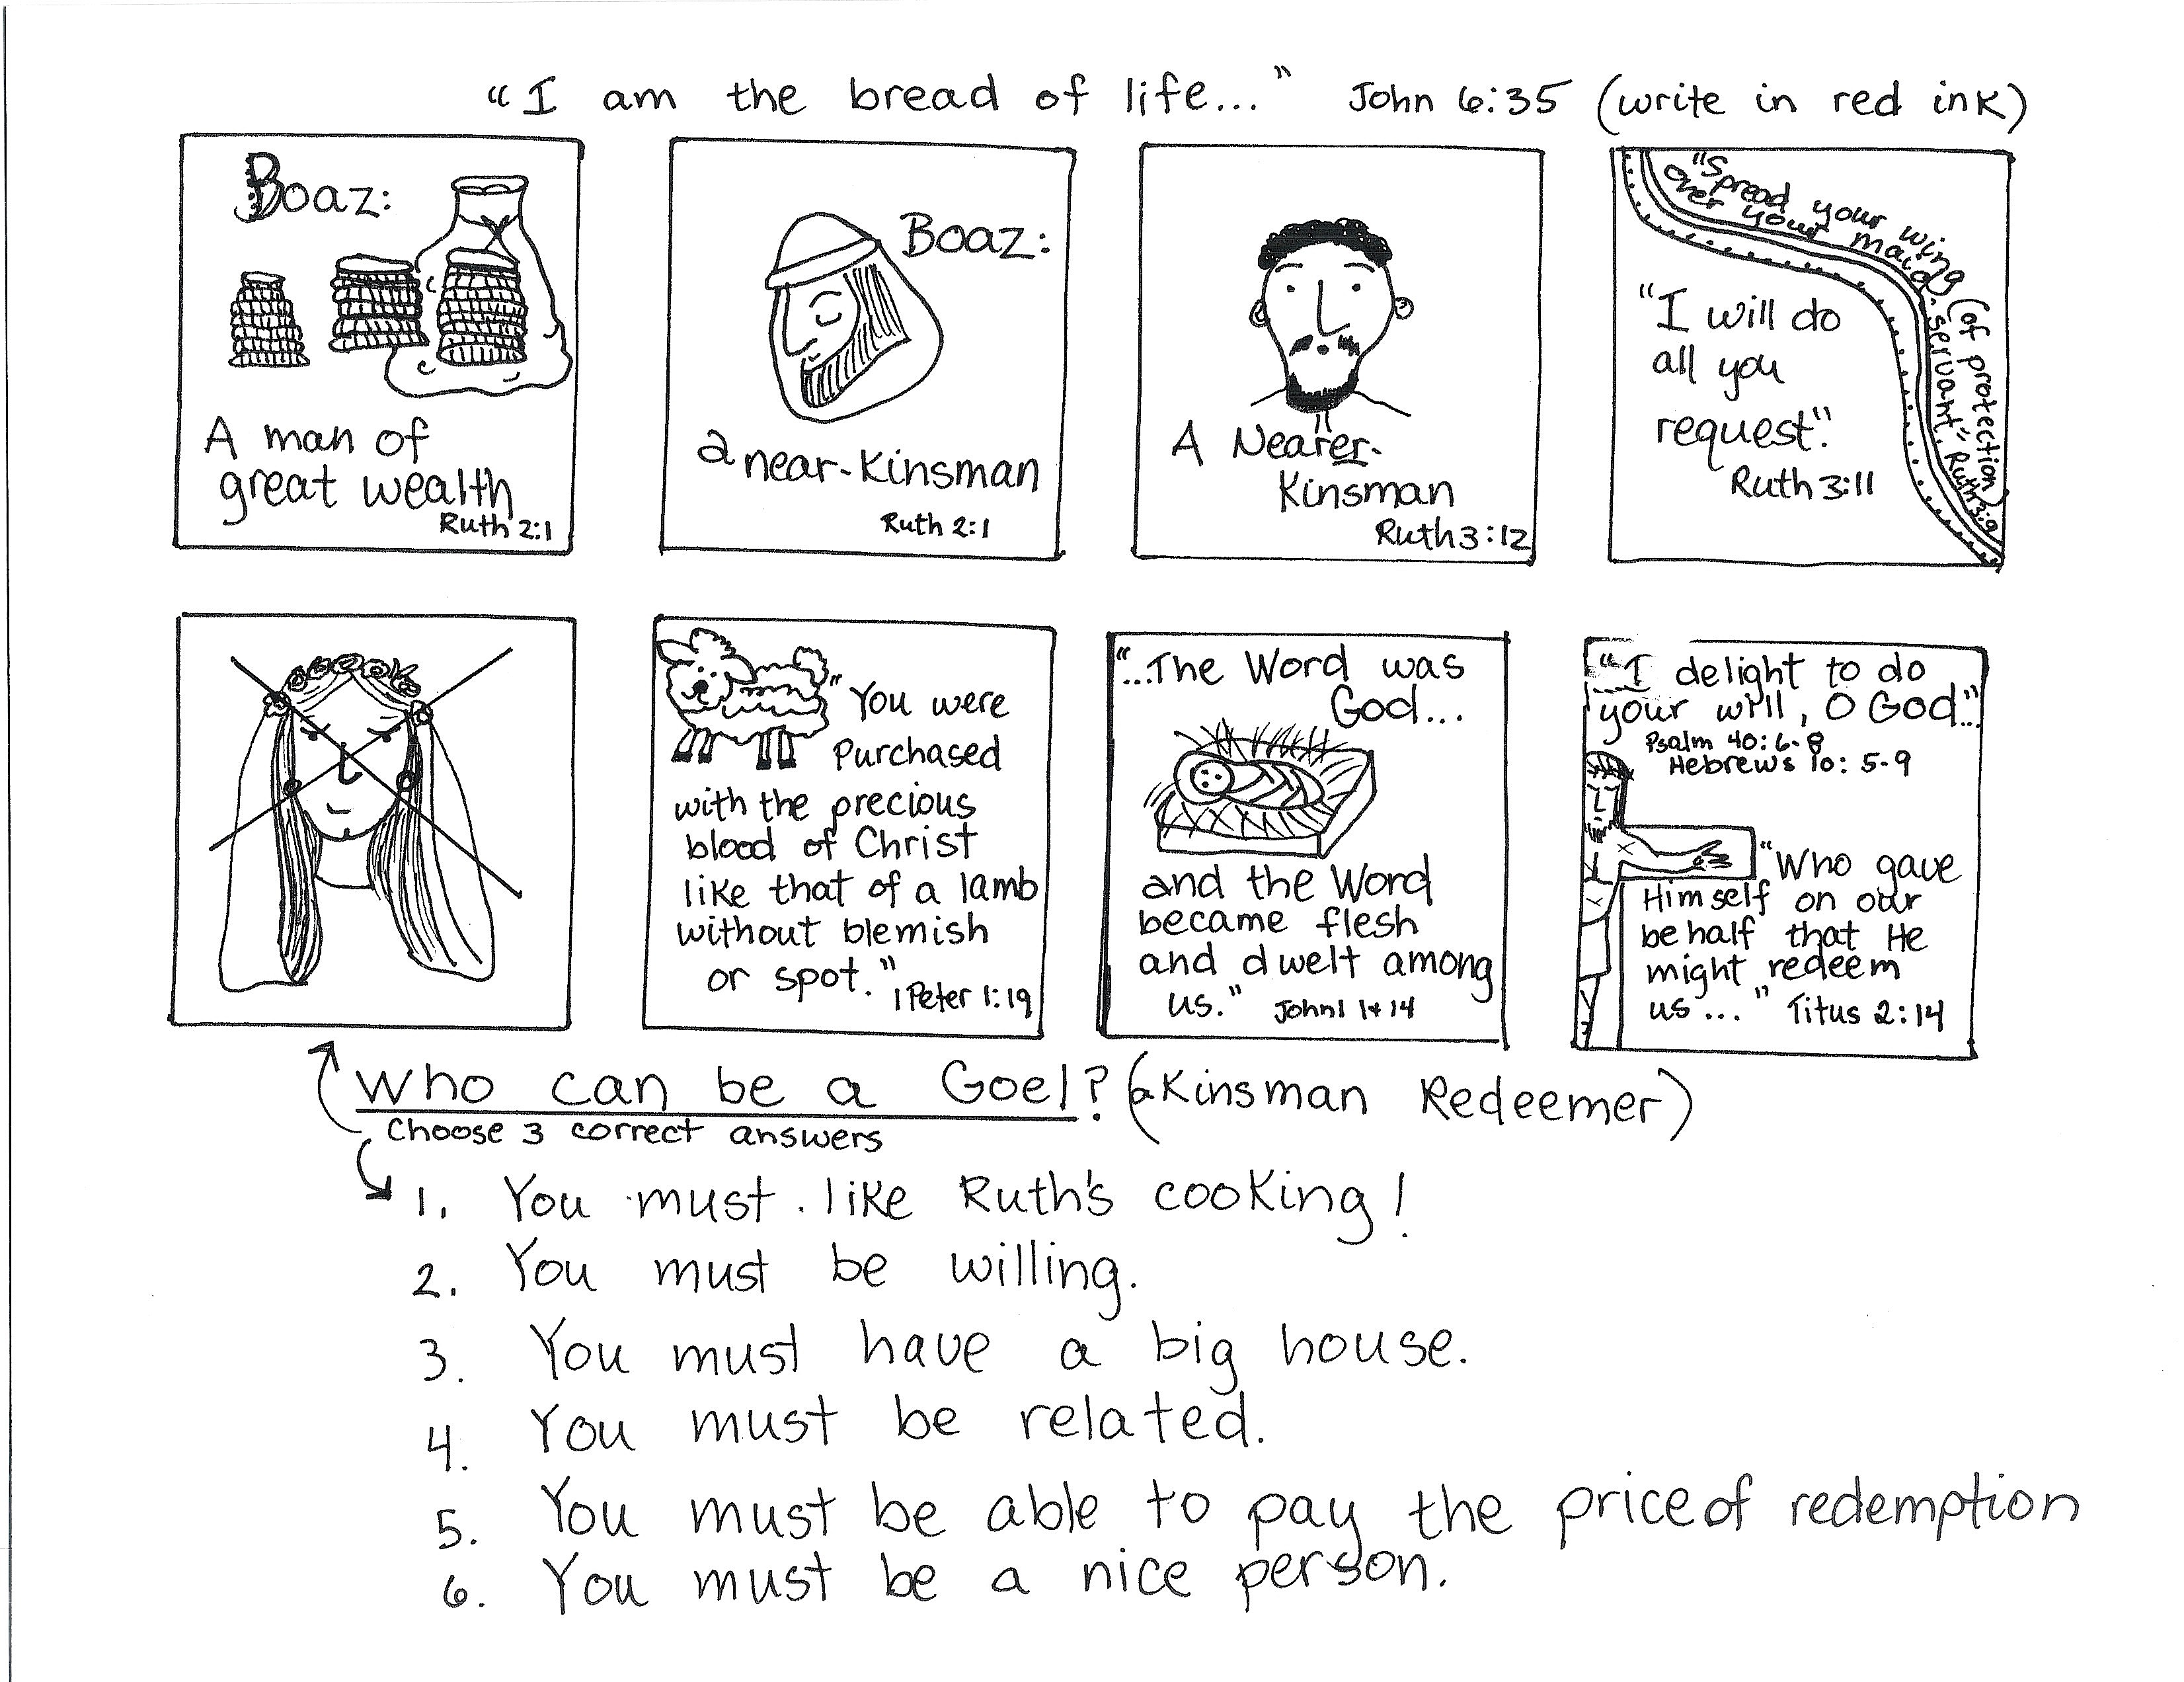 "I am the bread of life..." John 6:35 (write in red ink)
Boaz:
A man of
great wealth
Ruth 2:1
Boaz:
a near-Kinsman
Ruth 2:1
A Nearer-
Kinsman
Ruth 3:12
"Spread your wing (of protection)
over your maid-servant." Ruth 3:9
"I will do
all you
request".
Ruth 3:11
"You were
Purchased
with the precious
blood of Christ
like that of a lamb
without blemish
or spot."
1 Peter 1:19
"...The Word was
God...
and the Word
became flesh
and dwelt among
us." John 1 1+14
"I delight to do
your will, O God..."
Psalm 40:6-8
Hebrews 10:5-9
"Who gave
Himself on our
behalf that He
might redeem
us..." Titus 2:14
Who can be a Goel? (a Kinsman Redeemer)
Choose 3 correct answers
1. You must like Ruth's cooking!
2. You must be willing.
3. You must have a big house.
4. You must be related.
5. You must be able to pay the price of redemption
6. You must be a nice person.